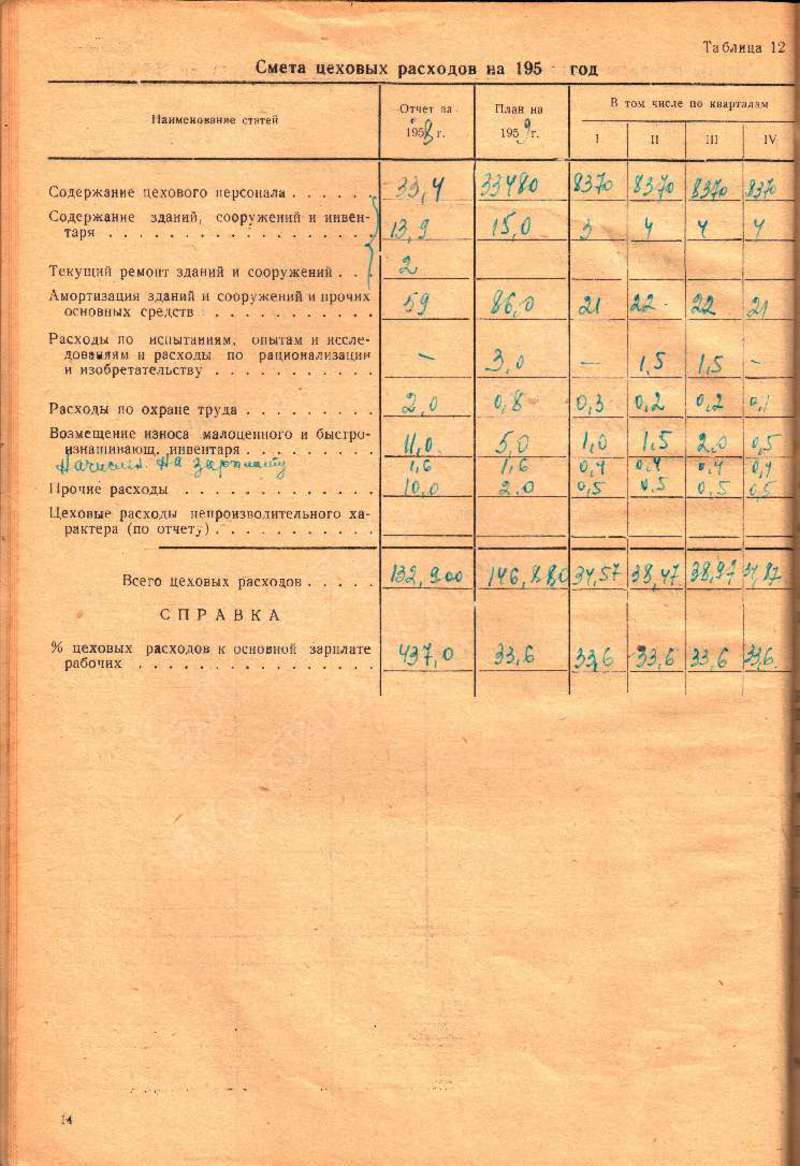 Таблица 12
Смета цеховых расходов на 195 год
Наименование статей
Отчет за 1958 г.
План на 1959 г.
В том числе по кварталам
I II III IV
Содержание цехового персонала . . . . . . 33,4 33480 8370 8370 8370 8370
Содержание зданий, сооружений и инвен-
таря . . . . . . . . . . . . . . . . . 13,9 15,0 3 4 4 4
Текущий ремонт зданий и сооружений . . . 2
Амортизация зданий и сооружений и прочих
основных средств . . . . . . . . . . . 59 86,0 21 22 22 21
Расходы по испытаниям, опытам и иссле-
дованиям и расходы по рационализации
и изобретательству . . . . . . . . . . . – 3,0 — 1,5 1,5 –
Расходы по охране труда . . . . . . . . . 2,0 0,8 0,3 0,2 0,2 0,1
Возмещение износа малоценного и быстро-
изнашивающ. инвентаря . . . . . . . . . 11,0 5,0 1,0 1,5 2,0 0,5
Начисл. на зарплату 1,6 1,6 0,4 0,4 0,4 0,4
Прочие расходы . . . . . . . . . . . . . 10,0 2,0 0,5 0,5 0,5 0,5
Цеховые расходы непроизводительного ха-
рактера (по отчету) . . . . . . . . . . .
Всего цеховых расходов . . . . . 132,900 146,880 34,57 38,47 38,97 34,87
СПРАВКА
% цеховых расходов к основной зарплате
рабочих . . . . . . . . . . . . . . . . 437,0 33,6 33,6 33,6 33,6 33,6
14